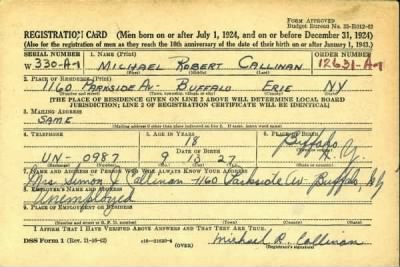 FORM APPROVED
Budget Bureau No. 33-R012-42
REGISTRATION CARD—(Men born on or after July 1, 1924, and on or before December 31, 1924)
(Also for the registration of men as they reach the 18th anniversary of the date of their birth on or after January 1, 1943.)
SERIAL NUMBER 1. NAME (Print) ORDER NUMBER
W 330-A-1 MICHAEL ROBERT CALLINAN 12631-A-1
2. PLACE OF RESIDENCE (Print)
1160 PARKSIDE AV. BUFFALO ERIE NY
(Number and street) (Town, township, village, or city) (County) (State)
[THE PLACE OF RESIDENCE GIVEN ON LINE 2 ABOVE WILL DETERMINE LOCAL BOARD
JURISDICTION; LINE 2 OF REGISTRATION CERTIFICATE WILL BE IDENTICAL]
3. MAILING ADDRESS
SAME
4. TELEPHONE 5. AGE IN YEARS 6. PLACE OF BIRTH
18 Buffalo
DATE OF BIRTH
UN- 0987 9 13 27 N.Y.
7. NAME AND ADDRESS OF PERSON WHO WILL ALWAYS KNOW YOUR ADDRESS
Mrs Simon J Callinan 1160 Parkside Av Buffalo NY
8. EMPLOYER'S NAME AND ADDRESS
Unemployed
9. PLACE OF EMPLOYMENT OR BUSINESS
(Number and street or R. F. D. number) (Town) (County) (State)
I AFFIRM THAT I HAVE VERIFIED ABOVE ANSWERS AND THAT THEY ARE TRUE.
DSS Form 1 (Rev. 11-16-42) (OVER) Michael R. Callinan
(Registrant's signature)